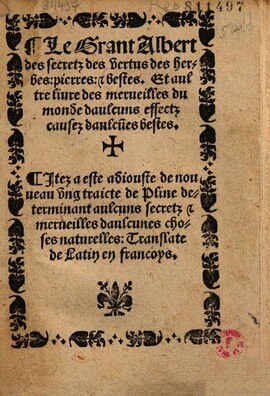 811497
¶Le Grant Albert
des secretz des vertus des her-
bes: pierres: & bestes. Et aul
tre livre des merveilles du
monde daulcuns effectz
causez daulcũes bestes.
¶Itez a este adiouste de nou
veau ung traicte de Pline de-
terminant aulcuns secretz &
merveilles daulcunes cho-
ses naturelles: Translate
de Latin en francoys.